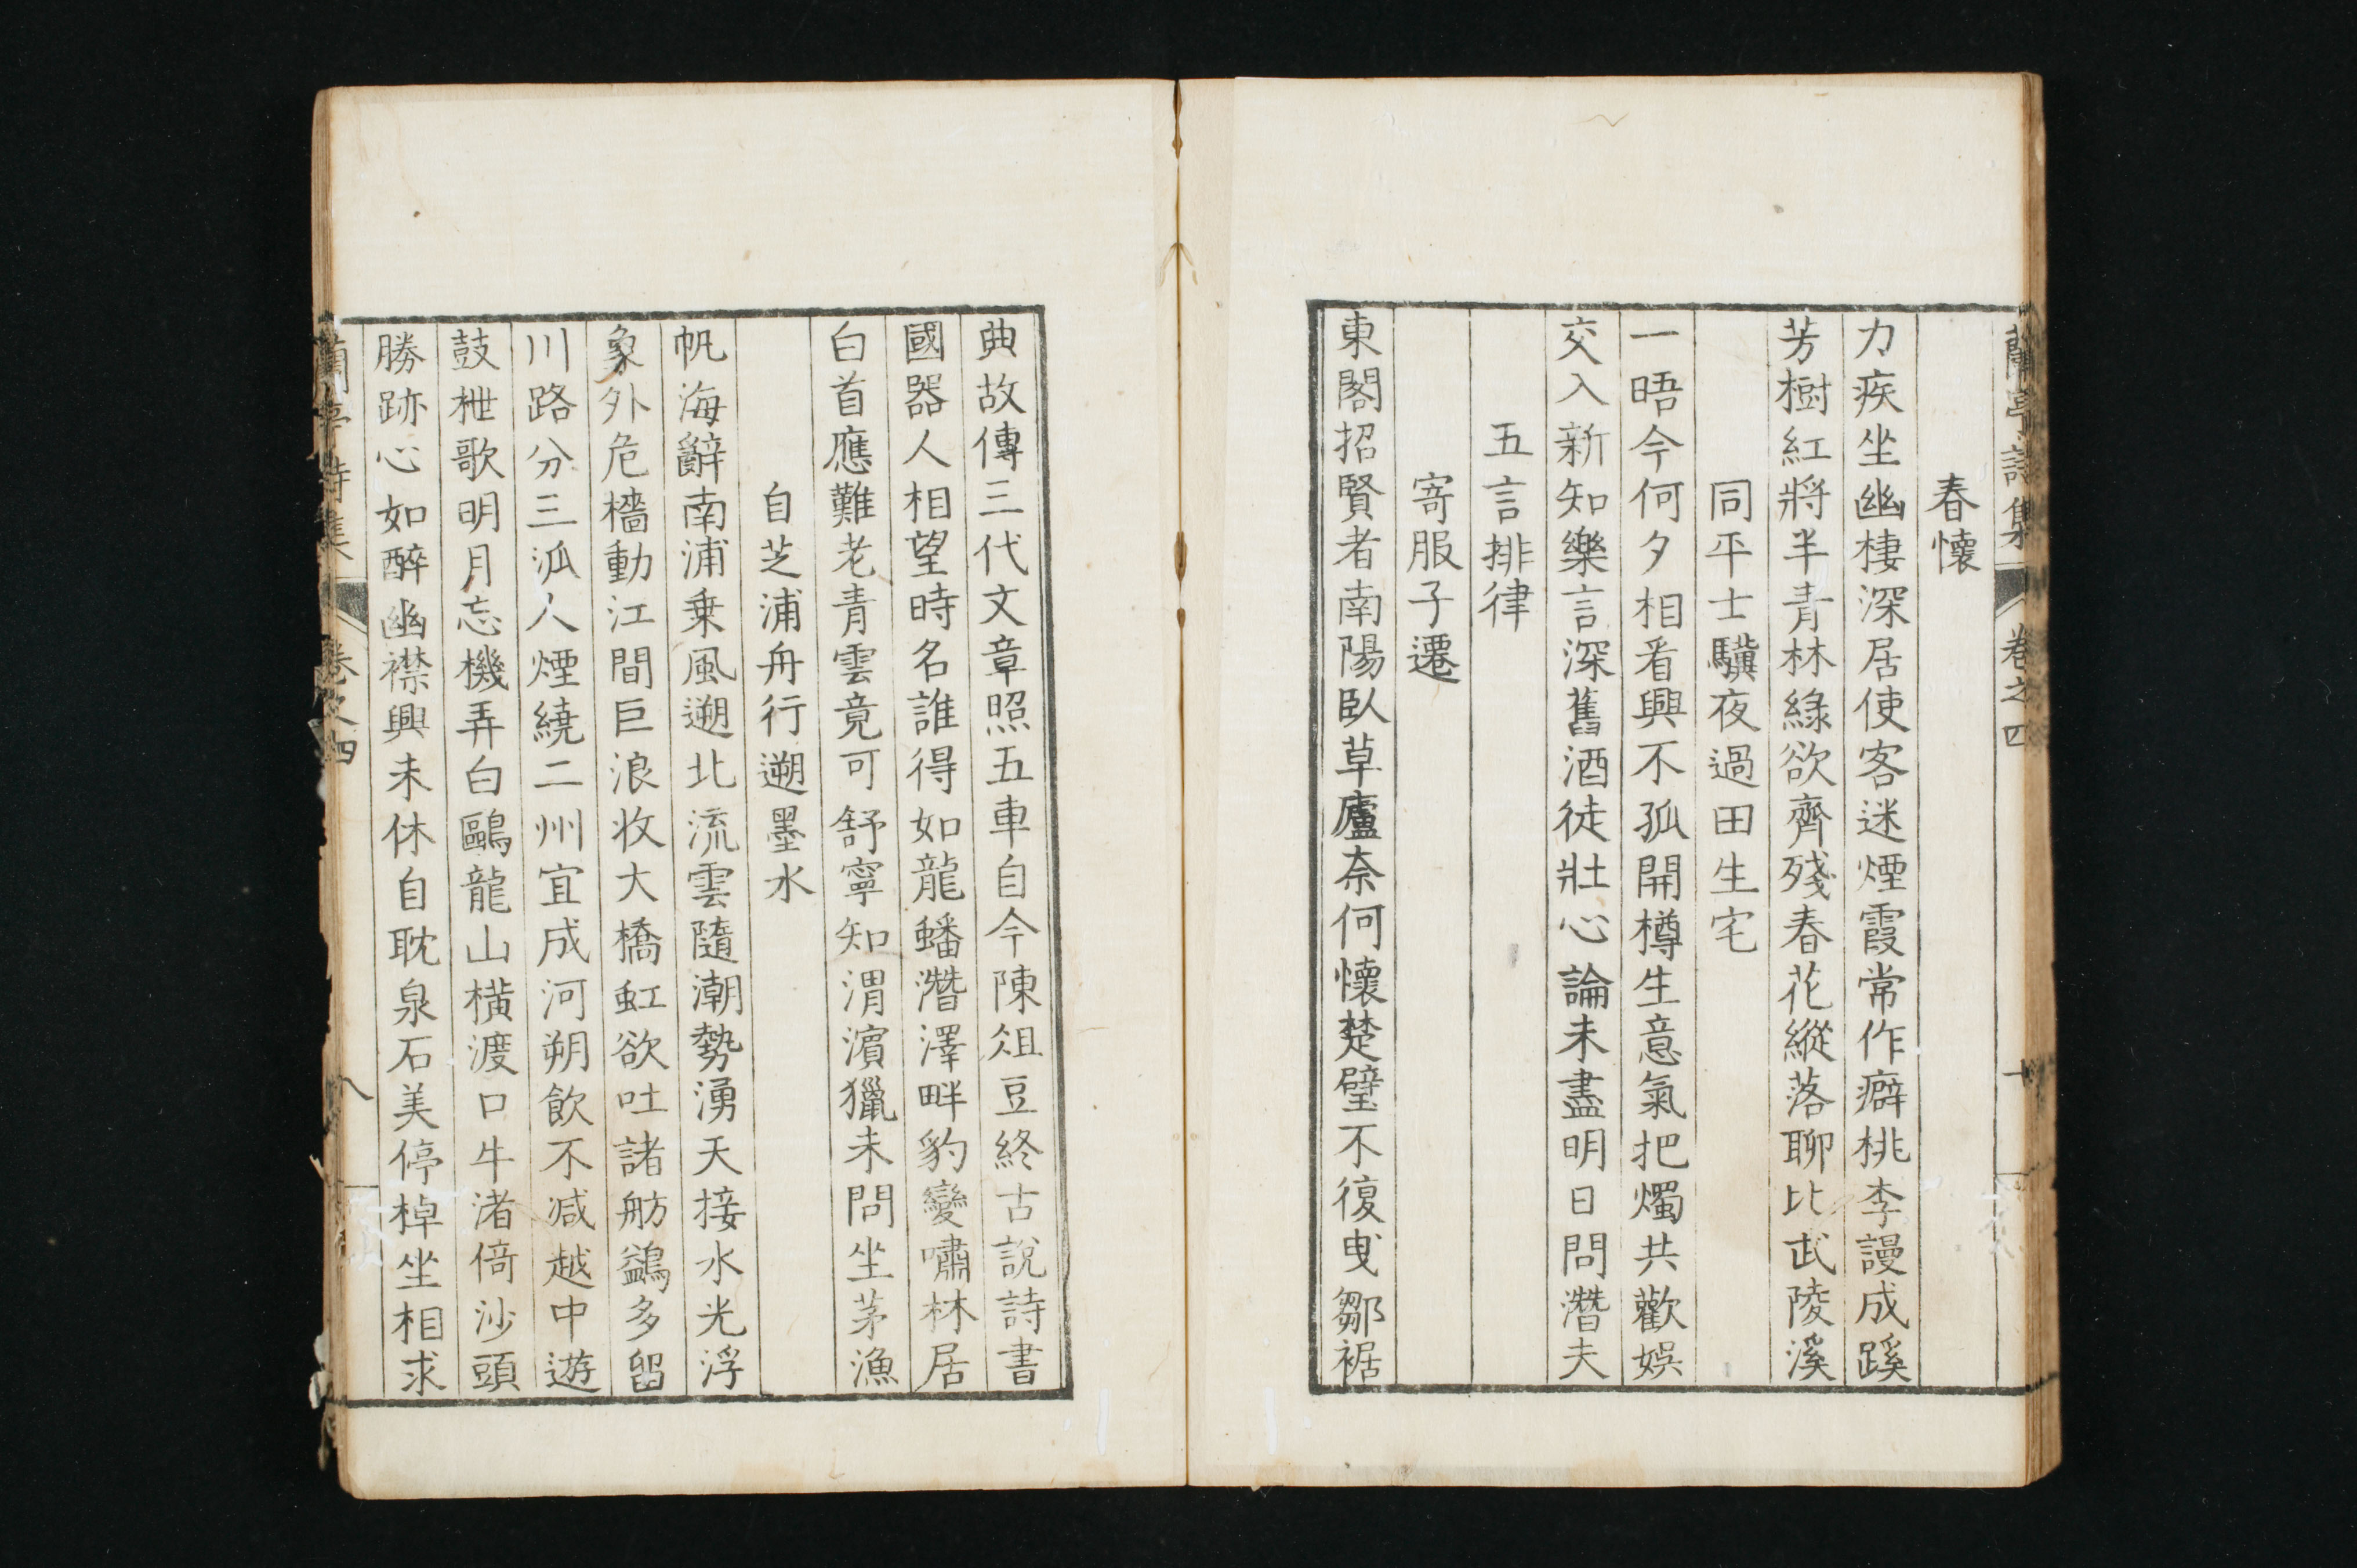 蘭亭詩集 卷之四
春懷
力疾坐幽棲深居使客迷煙霞常作癖桃李謾成蹊
芳樹紅將半青林綠欲齊殘春花縱落聊比武陵溪
同平士驥夜過田生宅
一晤今何夕相看興不孤開樽生意氣把燭共歡娛
交入新知樂言深舊酒徒壯心論未盡明日問潛夫
五言排律
寄服子遷
東閣招賢者南陽臥草廬奈何懷楚璧不復曳鄒裾
典故傳三代文章照五車自今陳俎豆終古說詩書
國器人相望時名誰得如龍蟠潛澤畔豹變嘯林居
白首應難老青雲竟可舒寧知渭濱獵未問坐茅漁
自芝浦舟行遡墨水
帆海辭南浦乗風遡北流雲隨潮勢湧天接水光浮
象外危檣動江間巨浪收大橋虹欲吐諸舫鷁多留
川路分三泒人煙繞二州宜成河朔飲不減越中遊
鼓枻歌明月忘機弄白鷗龍山橫渡口牛渚倚沙頭
勝跡心如醉幽襟興未休自耽泉石美停棹坐相求
蘭亭詩集 卷之四 八